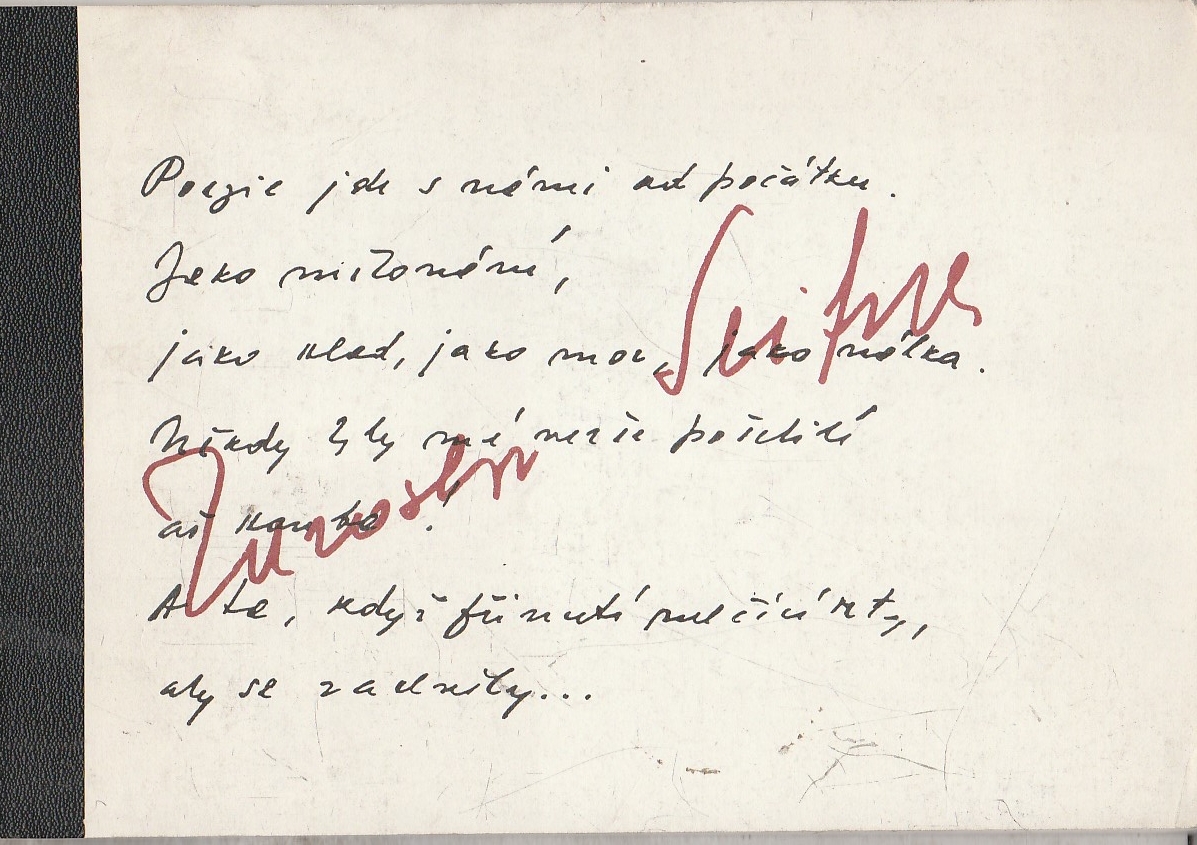 Poezie jde s námi od počátku.
Jako milování,
jako hlad, jako mor, jako válka.
Někdy byly mé verše pošetilé
až hanba!
A to, když přinutí mlčící rty,
aby se zachvěly...
Jaroslav Seifert